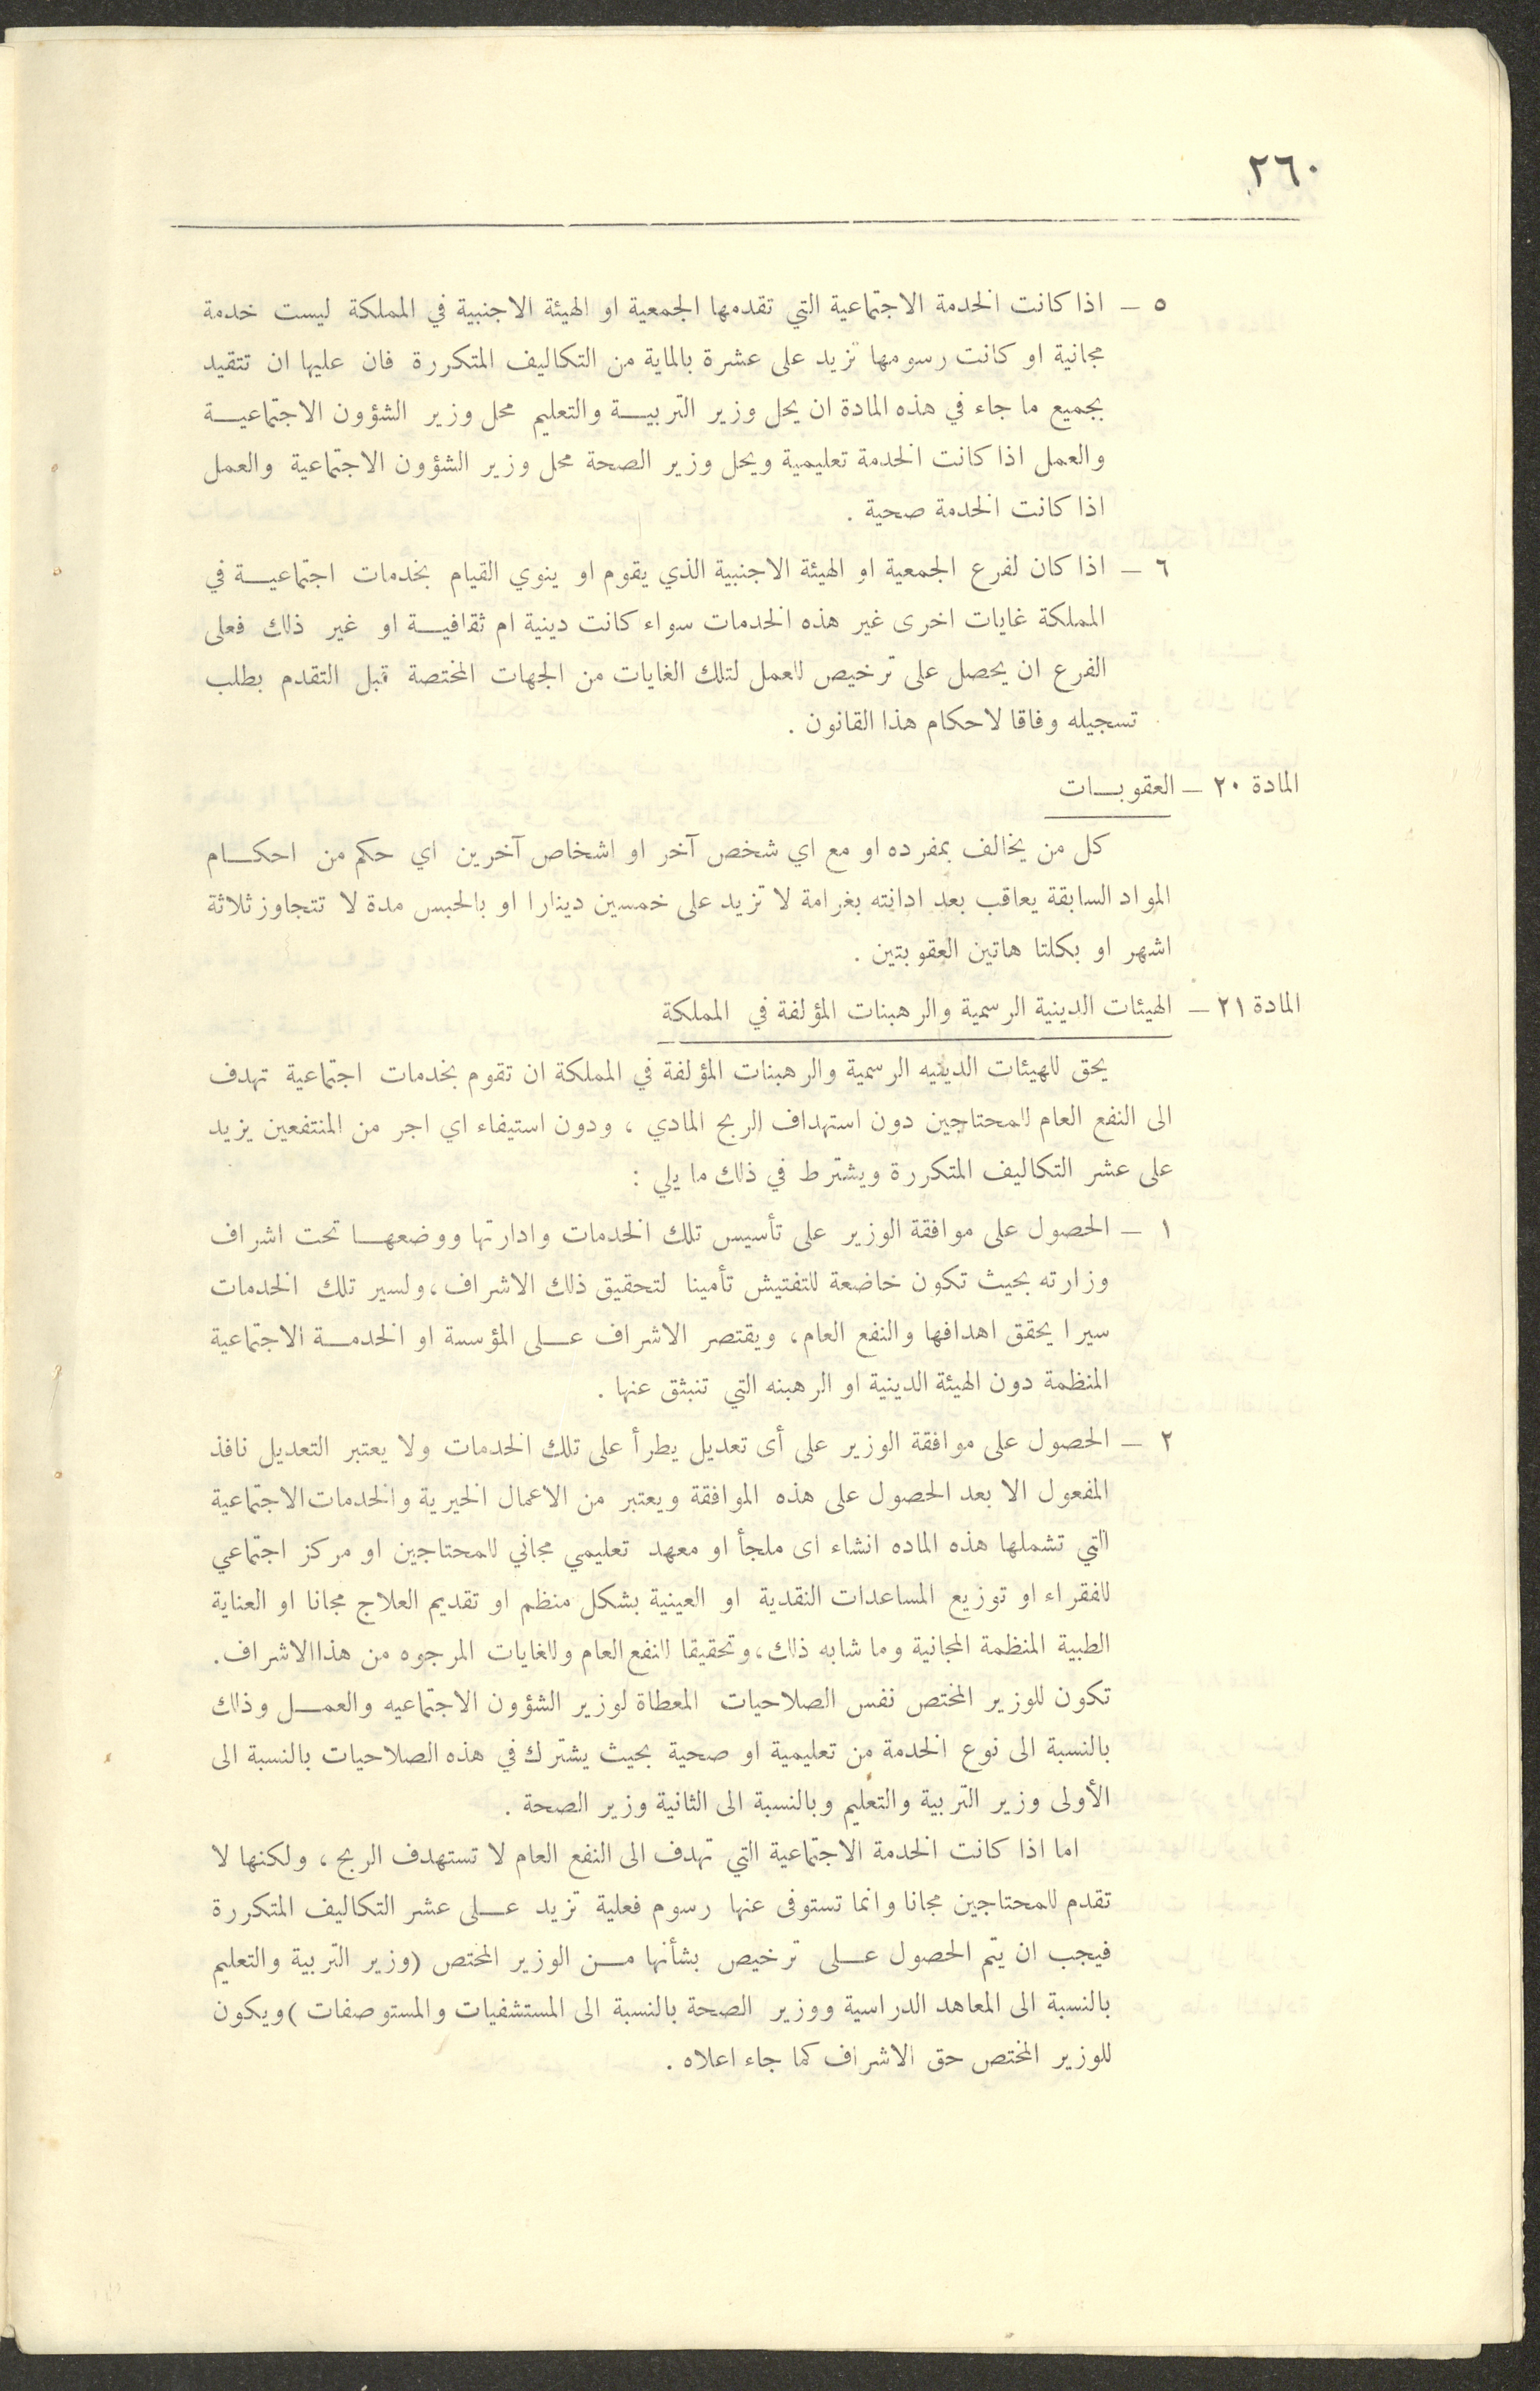 ٢٦٠
٥ – اذا كانت الخدمة الاجتماعية التي تقدمها الجمعية او الهيئة الاجنبية في المملكة ليست خدمة
مجانية او كانت رسومها تزيد على عشرة بالماية من التكاليف المتكررة فان عليها ان تتقيد
بجميع ما جاء في هذه المادة ان يحل وزير التربيـــة والتعليم محل وزير الشؤون الاجتماعيـــة
والعمل اذا كانت الخدمة تعليمية ويحل وزير الصحة محل وزير الشؤون الاجتماعية والعمل
اذا كانت الخدمة صحية .
٦ – اذا كان لفرع الجمعية او الهيئة الاجنبية الذي يقوم او ينوي القيام بخدمات اجتماعيـــة في
المملكة غايات اخرى غير هذه الخدمات سواء كانت دينية ام ثقافيـــة او غير ذلك فعلى
الفرع ان يحصل على ترخيص للعمل لتلك الغايات من الجهات المختصة قبل التقدم بطلب
تسجيله وفاقا لاحكام هذا القانون .
المادة ٢٠ – العقوبــات
كل من يخالف بمفرده او مع اي شخص آخر او اشخاص آخرين اي حكم من احكــام
المواد السابقة يعاقب بعد ادانته بغرامة لا تزيد على خمسين دينارا او بالحبس مدة لا تتجاوز ثلاثة
اشهر او بكلتا هاتين العقوبتين .
المادة ٢١ – الهيئات الدينية الرسمية والرهبنات المؤلفة في المملكة
يحق للهيئات الدينيه الرسمية والرهبنات المؤلفة في المملكة ان تقوم بخدمات اجتماعية تهدف
الى النفع العام للمحتاجين دون استهداف الربح المادي ، ودون استيفاء اي اجر من المنتفعين يزيد
على عشر التكاليف المتكررة ويشترط في ذلك ما يلي :
١ – الحصول على موافقة الوزير على تأسيس تلك الخدمات وادارتها ووضعهــا تحت اشراف
وزارته بحيث تكون خاضعة للتفتيش تأمينا لتحقيق ذلك الاشراف، ولسير تلك الخدمات
سيرا يحقق اهدافها والنفع العام، ويقتصر الاشراف عــلى المؤسسة او الخدمــة الاجتماعية
المنظمة دون الهيئة الدينية او الرهبنه التي تنبثق عنها .
٢ – الحصول على موافقة الوزير على أى تعديل يطرأ على تلك الخدمات ولا يعتبر التعديل نافذ
المفعول الا بعد الحصول على هذه الموافقة ويعتبر من الاعمال الخيرية والخدمات الاجتماعية
التي تشملها هذه الماده انشاء اى ملجأ او معهد تعليمي مجاني للمحتاجين او مركز اجتماعي
للفقراء او توزيع المساعدات النقدية او العينية بشكل منظم او تقديم العلاج مجانا او العناية
الطبية المنظمة المجانية وما شابه ذلك، وتحقيقا للنفع العام وللغايات المرجوه من هذا الاشراف.
تكون للوزير المختص نفس الصلاحيات المعطاة لوزير الشؤون الاجتماعيه والعمــل وذلك
بالنسبة الى نوع الخدمة من تعليمية او صحية بحيث يشترك في هذه الصلاحيات بالنسبة الى
الأولى وزير التربية والتعليم وبالنسبة الى الثانية وزير الصحة .
اما اذا كانت الخدمة الاجتماعية التي تهدف الى النفع العام لا تستهدف الربح ، ولكنها لا
تقدم للمحتاجين مجانا وانما تستوفى عنها رسوم فعلية تزيد عــلى عشر التكاليف المتكررة
فيجب ان يتم الحصول عــلى ترخيص بشأنها مــن الوزير المختص (وزير التربية والتعليم
بالنسبة الى المعاهد الدراسية ووزير الصحة بالنسبة الى المستشفيات والمستوصفات) ويكون
للوزير المختص حق الاشراف كما جاء اعلاه .